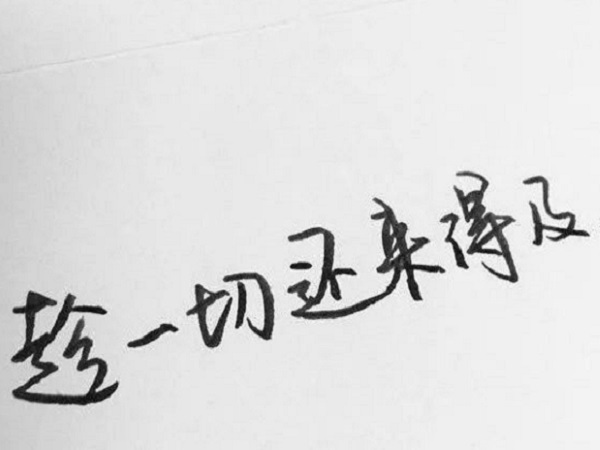 趁一切还来得及.